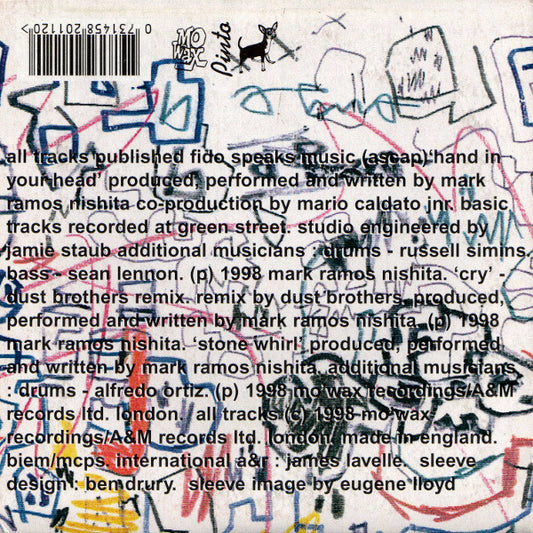 0 731458 201120 >
MO
WAX
Pinto
all tracks published fido speaks music (ascap) 'hand in
your head' produced, performed and written by mark
ramos nishita co-production by mario caldato jnr. basic
tracks recorded at green street. studio engineered by
jamie staub additional musicians : drums - russell simins.
bass - sean lennon. (p) 1998 mark ramos nishita. 'cry' -
dust brothers remix. remix by dust brothers, produced,
performed and written by mark ramos nishita. (p) 1998
mark ramos nishita. 'stone whirl' produced, performed
and written by mark ramos nishita. additional musicians
: drums - alfredo ortiz. (p) 1998 mo wax recordings/A&M
records ltd. london. all tracks (c) 1998 mo wax
recordings/A&M records ltd. london. made in england.
biem/mcps. international a&r : james lavelle. sleeve
design : ben drury. sleeve image by eugene lloyd